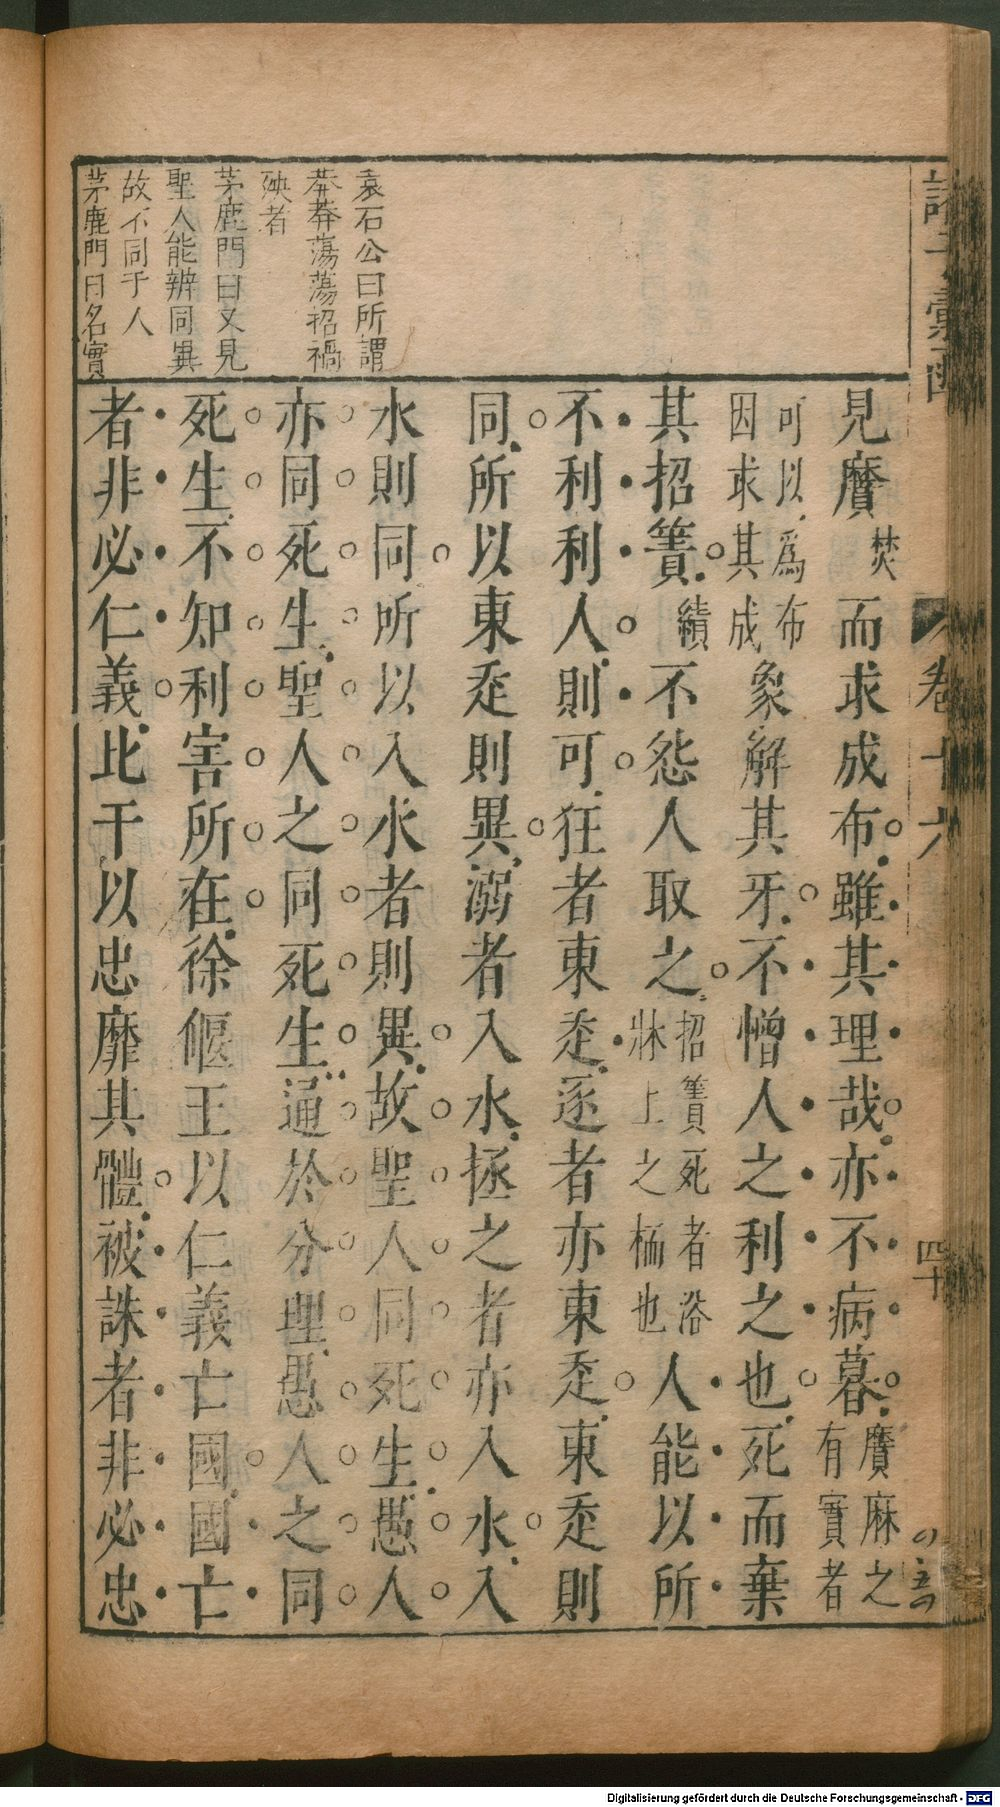 袁石公曰所謂
莽莽蕩蕩招禍
殃者
茅鹿門曰又見
聖人能辨同異
故不同于人
茅鹿門曰名實
見黂焚而求成布雖其理哉亦不病暮黂麻之有實者
可以爲布因求其成象解其牙不憎人之利之也死而棄
其招簀績不怨人取之招簀死者浴牀上之栭也人能以所
不利利人則可狂者東走逐者亦東走東走則
同所以東走則異溺者入水拯之者亦入水入
水則同所以入水者則異故聖人同死生愚人
亦同死生聖人之同死生通於分理愚人之同
死生不知利害所在徐偃王以仁義亡國國亡
者非必仁義比干以忠靡其體被誅者非必忠
卷十六
四十
Digitalisierung gefördert durch die Deutsche Forschungsgemeinschaft - DFG